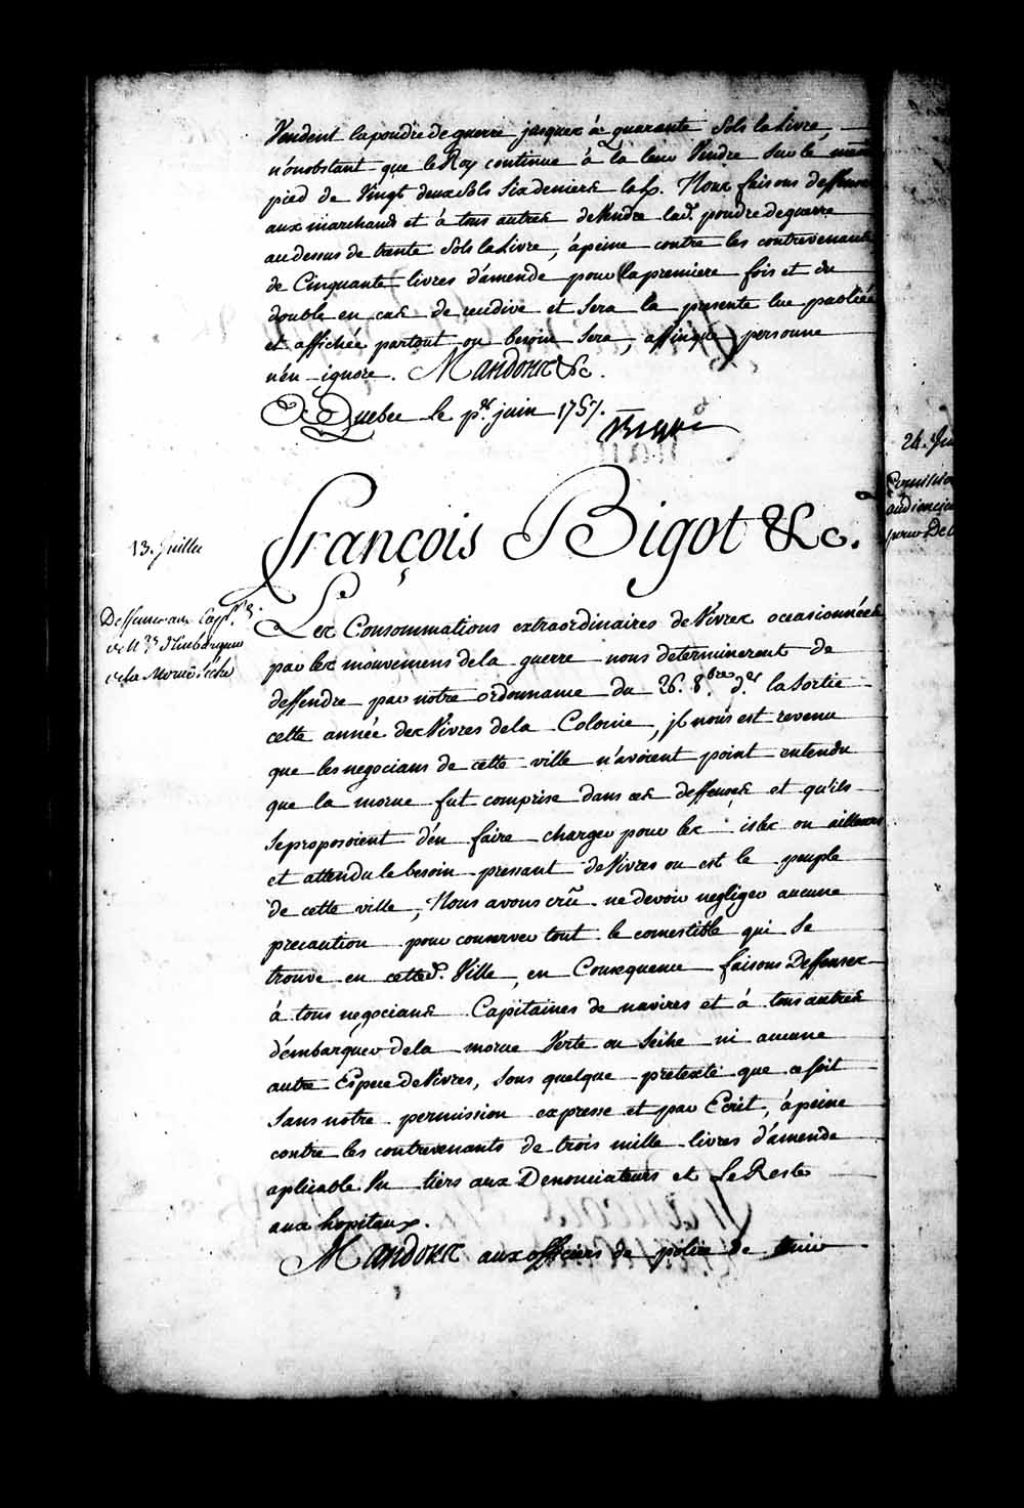 Vendent la poudre de guerre jusques à quarante Sols la Livre,
n'onobstant que le Roy continue à la leur Vendre Sur le meme
pied de Vingt deux Sols Six deniers la ℔. Nous faisons deffenses
aux marchands et à tous autres de Vendre lad. poudre de guerre
au dessus de trente Sols la Livre, à peine contre les contrevenants
de Cinquante livres d'amende pour la premiere fois et du
double en cas de recidive et Sera la presente lue publiée
et affichée partout ou besoin Sera, affinque personne
n'en ignore. Mandons &c.
Quebec le pr. juin 1757.
Bigot
François Bigot &c.
13. Juillet
Deffenses aux Capnes.
de Nres d'Embarquer
de la Morue Seche
Les Consommations extraordinaires de Vivres occasionnées
par les mouvemens de la guerre nous determinerent de
deffendre par notre ordonnance du 26. 8bre. der. la Sortie
cette année des Vivres de la Colonie, il nous est revenu
que les negocians de cette ville n'avoient point entendu
que la morue fut comprise dans ces deffenses et qu'ils
Se proposoient d'en faire charger pour les isles ou ailleurs
et attendu le besoin pressant de Vivres ou est le peuple
de cette ville, Nous avons crû ne devoir negliger aucune
precaution pour conserver tout le comestible qui Se
trouve en cetted. Ville, en Consequence faisons Deffenses
à tous negocians Capitaines de navires et à tous autres
d'embarquer de la morue Verte ou Seche ni aucune
autre Espece de Vivres, Sous quelque pretexte que ce soit
Sans notre permission expresse et par Ecrit, à peine
contre les contrevenants de trois mille livres d'amende
aplicable Un tiers aux Denonciateurs et Le Reste
aux hopitaux.
Mandons aux officiers de police de tenir
24. Jui
Comission
audiencie
pour De